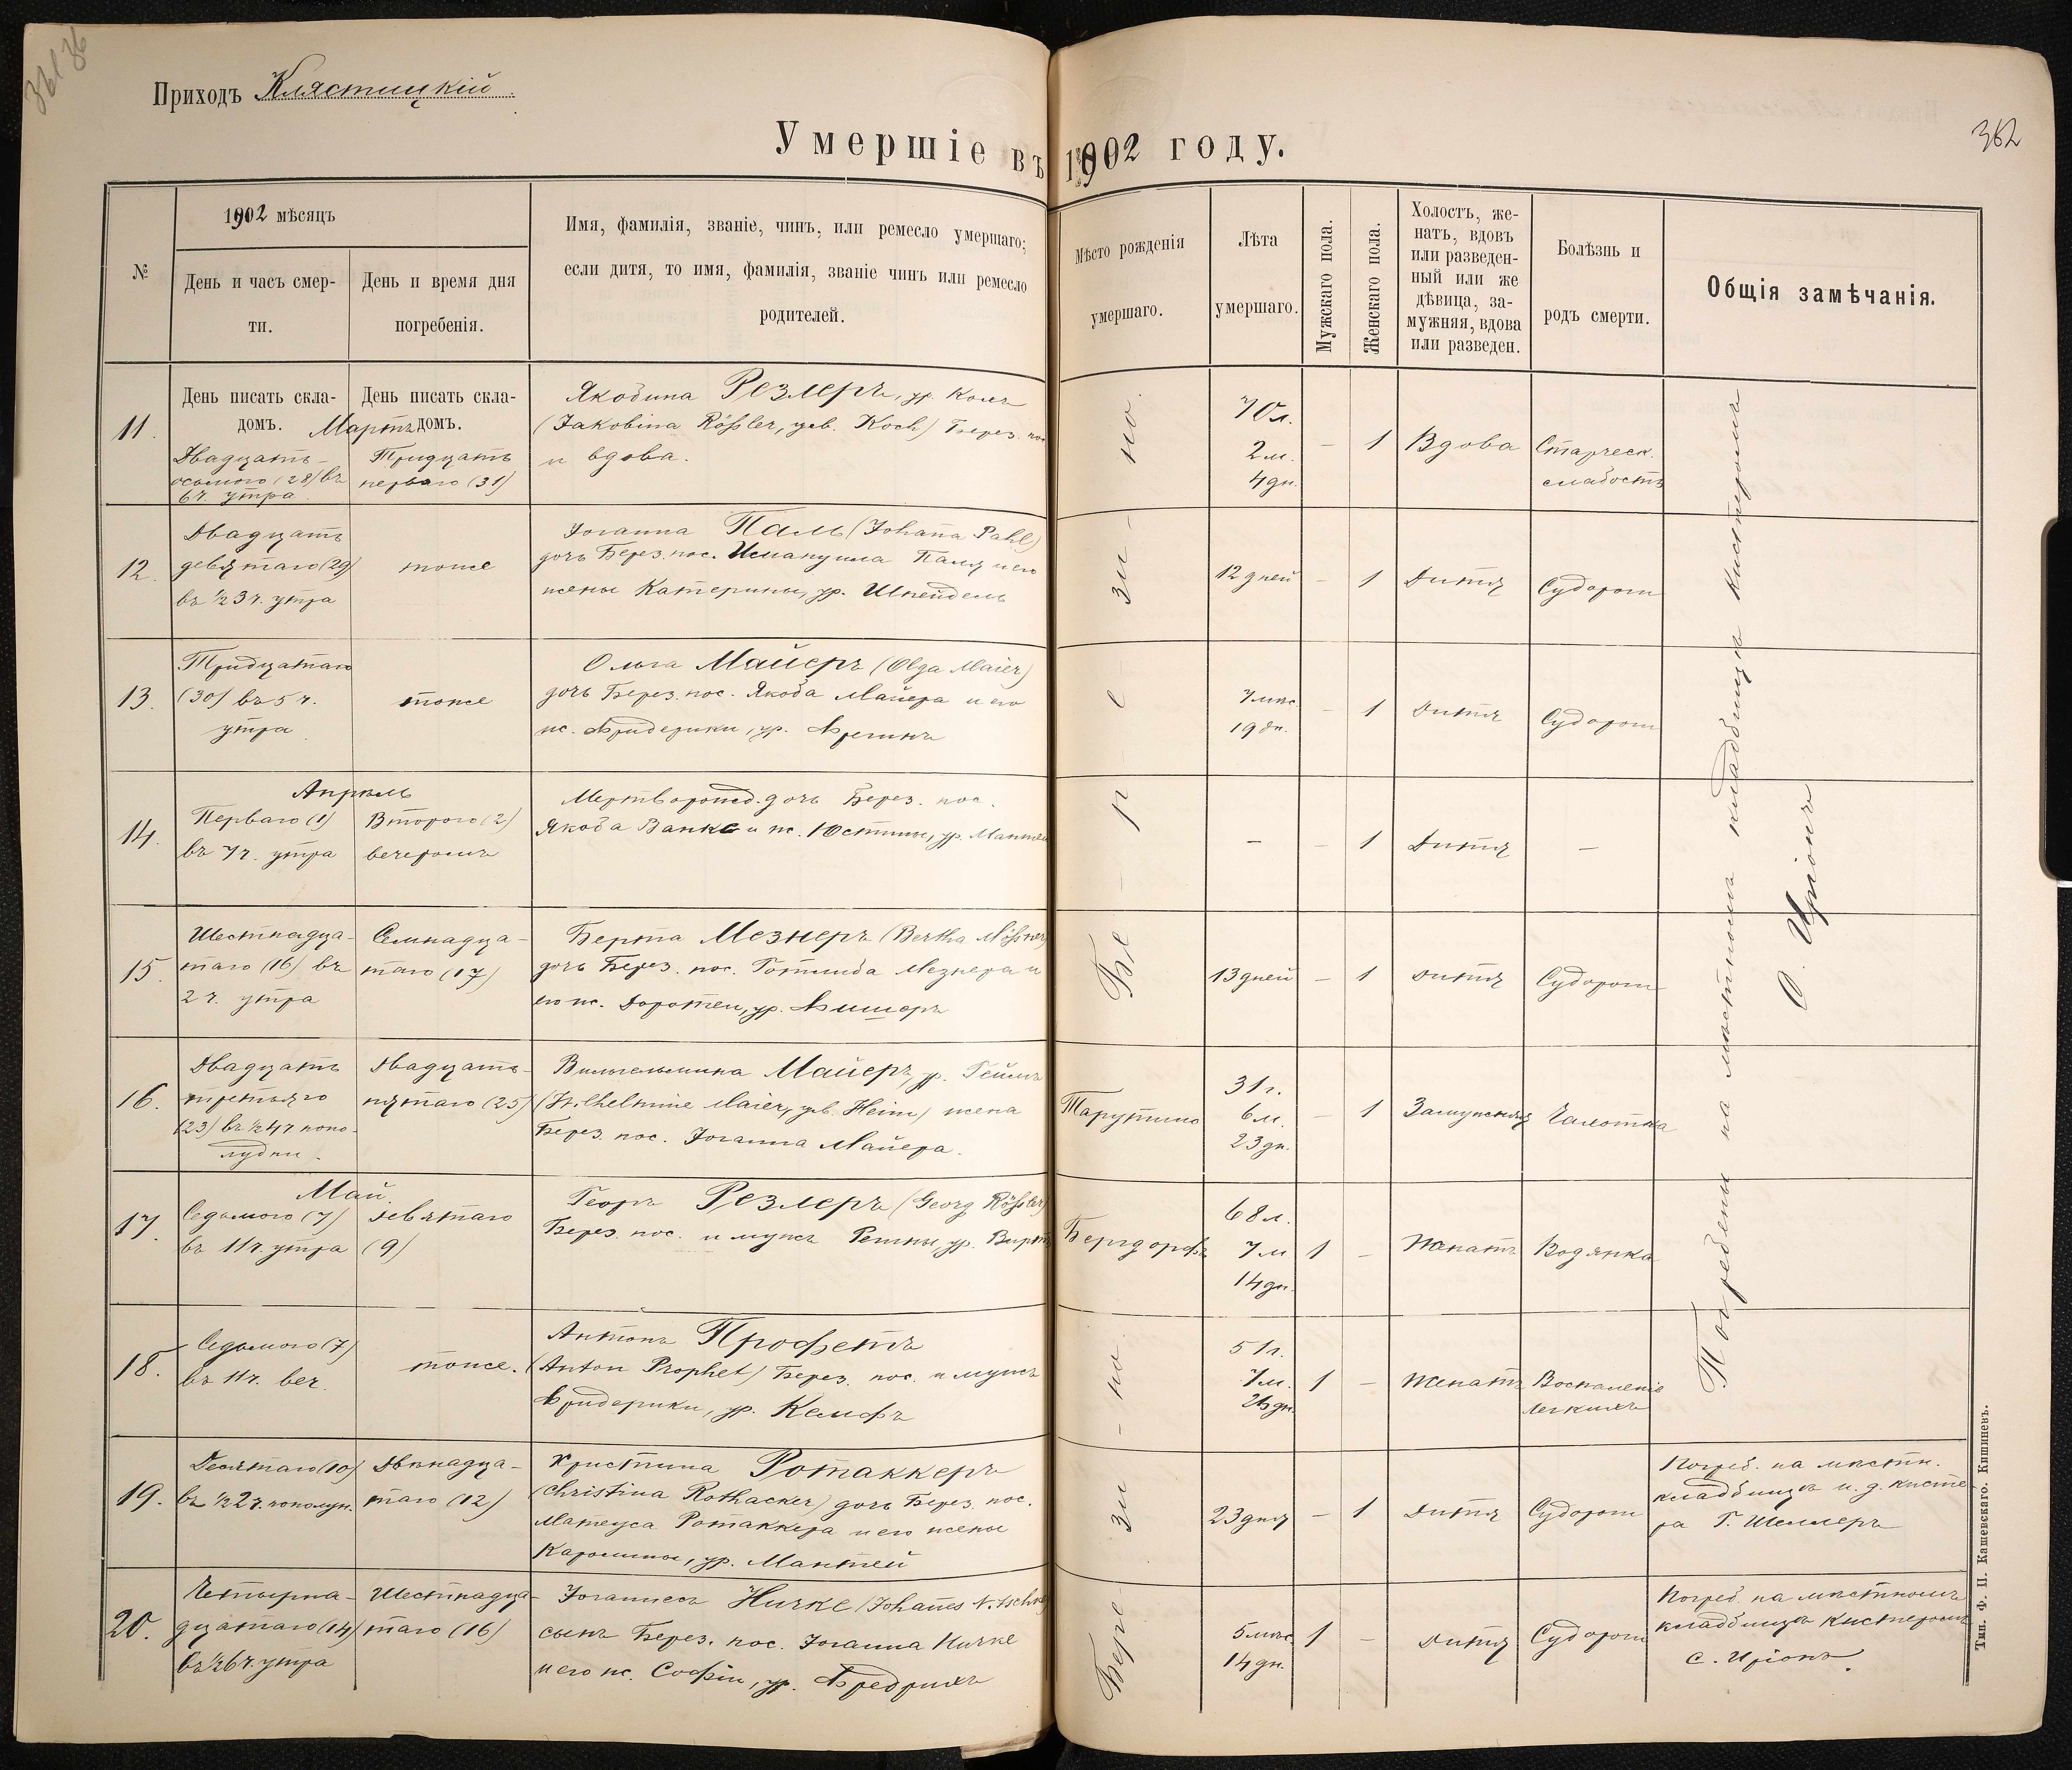 361 36
Приходъ Клястицкій.
362
Умершіе въ 1902 году.
№
1902 мѣсяцъ
День и часъ смер-
ти.
День и время дня
погребенія.
Имя, фамилія, званіе, чинъ, или ремесло умершаго;
если дитя, то имя, фамилія, званіе чинъ или ремесло
родителей.
Мѣсто рожденія
умершаго.
Лѣта
умершаго.
Мужскаго пола.
Женскаго пола.
Холостъ, же-
натъ, вдовъ
или разведен-
ный или же
дѣвица, за-
мужняя, вдова
или разведен.
Болѣзнь и
родъ смерти.
Общія замѣчанія.
День писать скла-
домъ.
День писать скла-
домъ.
Мартъ
11.
Двадцать-
осьмого (28) въ
6 ч. утра
Тридцать
перваго (31)
Якобина Резлеръ, ур. Кохъ
(Jakobina Rößler, geb. Koch) Берез. пос.
и вдова.
70 л.
2 м.
4 дн.
–
1
Вдова
Старческ.
слабость
12.
Двадцать
девятаго (29)
въ ½3 ч. утра
тоже
Іоганна Паль (Johanna Pahl)
дочь Берез. пос. Иммануила Паля и его
жены Катерины, ур. Шнейдель
12 дней
–
1
Дитя
Судороги
13.
Тридцатаго
(30) въ 5 ч.
утра
тоже
Ольга Майеръ (Olga Maier)
дочь Берез. пос. Якоба Майера и его
ж. Фридерики, ур.
7 мѣс.
19 дн.
–
1
Дитя
Судороги
Апрѣль
14.
Перваго (1)
въ 7 ч. утра
Второго (2)
вечеромъ
Мертворожд. дочь Берез. пос.
Якоба Ванке и ж. Юстины, ур. Мантей
–
–
1
Дитя
–
15.
Шестнадца-
таго (16) въ
2 ч. утра
Семнадца-
таго (17)
Берта Мезнеръ (Bertha Mößner)
дочь Берез. пос. Готлиба Мезнера и
его ж. Доротеи, ур. Фишеръ
13 дней
–
1
Дитя
Судороги
Бе – р – е – зи – но.
16.
Двадцать
третьяго
(23) въ ½4 ч. попо-
лудни.
Двадцать-
пятаго (25)
Вильгельмина Майеръ, ур. Геймъ
(Wilhelmine Maier, geb. Heim) жена
Берез. пос. Іоганна Майера.
Тарутино
31 г.
6 м.
23 дн.
–
1
Замужняя
Чахотка
Май.
17.
Седьмого (7)
въ 11 ч. утра
Девятаго
(9)
Георгъ Резлеръ (Georg Rößler)
Берез. пос. и мужъ Регины, ур. Виртъ
Бергдорфъ
68 л.
7 м.
14 дн.
1
–
Женатъ
Водянка
18.
Седьмого (7)
въ 11 ч. веч.
тоже.
Антонъ Профетъ
(Anton Prophet) Берез. пос. и мужъ
Фридерики, ур. Кемфъ
51 г.
7 м.
26 дн.
1
–
Женатъ
Воспаленіе
легкихъ
Погребены на мѣстномъ кладбищѣ кистеромъ
С. Иріонъ
19.
Десятаго (10)
въ ½2 ч. пополуд.
Двѣнадца-
таго (12)
Христина Ротаккеръ
(Christina Rothacker) дочь Берез. пос.
Матеуса Ротаккера и его жены
Каролины, ур. Мантей
23 дня
–
1
Дитя
Судороги
Погреб. на мѣстн.
кладбищѣ и. д. кисте-
ра Г. Шеллеръ
20.
Четырна-
дцатаго (14)
въ ½6 ч. утра
Шестнадца-
таго (16)
Іоганнесъ Ничке (Johannes Nitschke)
сынъ Берез. пос. Іоганна Ничке
и его ж. Софіи, ур. Фредрихъ
Бере – зи – но.
5 мѣс.
14 дн.
1
–
Дитя
Судороги
Погреб. на мѣстномъ
кладбищѣ кистеромъ
С. Иріонъ.
Тип. Ф. П. Кашевскаго. Кишиневъ.